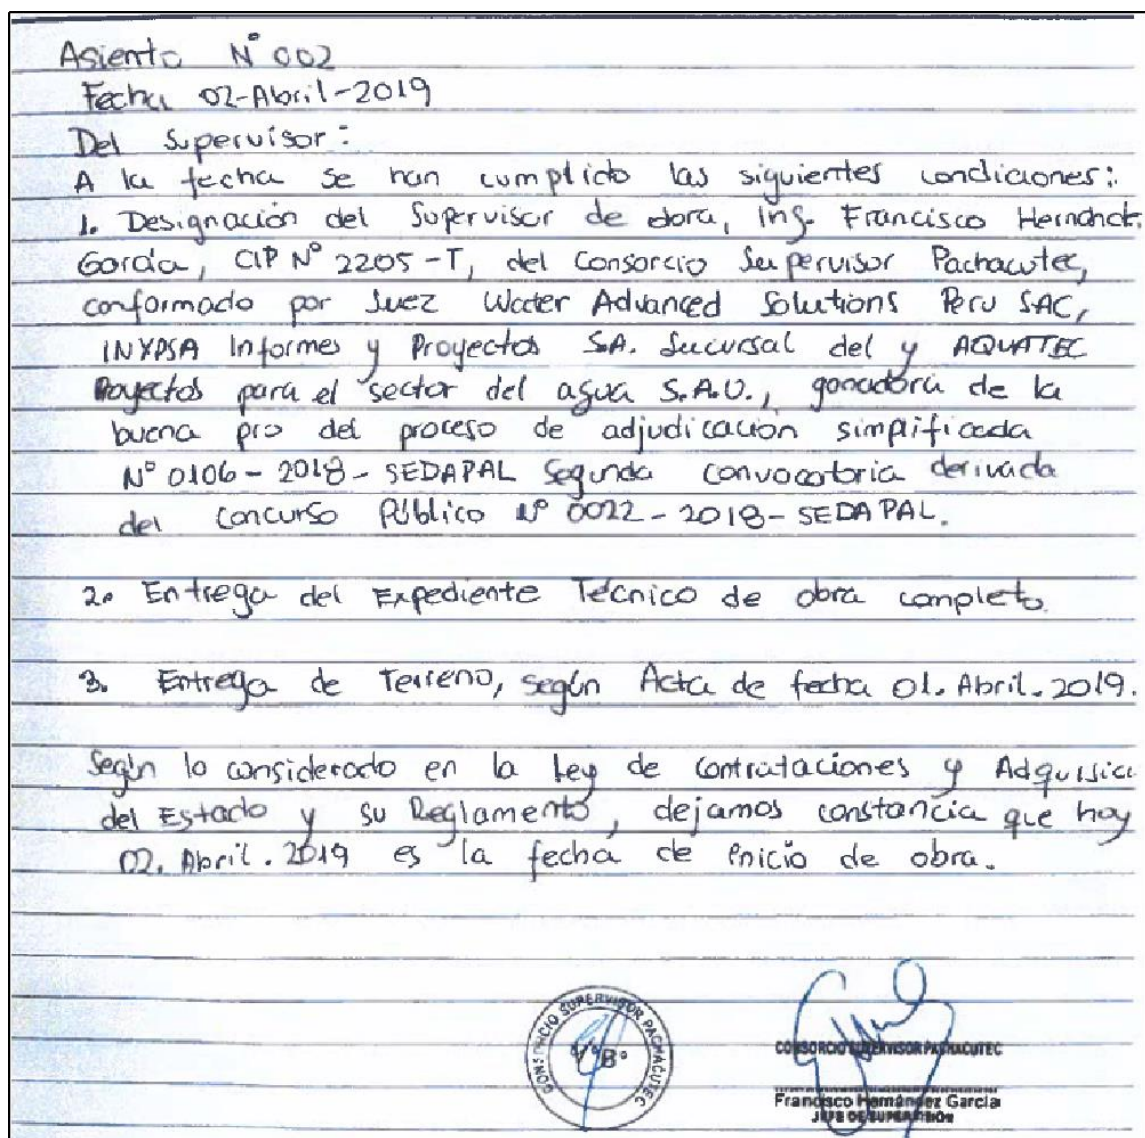 Asiento N° 002
Fecha 02-Abril-2019
Del Supervisor:
A la fecha se han cumplido las siguientes condiciones:
1. Designación del Supervisor de obra, Ing. Francisco Hernández
García, CIP N° 2205-T, del Consorcio Supervisor Pachacutec,
conformado por Suez Water Advanced Solutions Peru SAC,
INYPSA Informes y Proyectos S.A. Sucursal del y AQUATEC
Proyectos para el sector del agua S.A.U., ganadora de la
buena pro del proceso de adjudicación simplificada
N° 0106-2018-SEDAPAL Segunda convocatoria derivada
del Concurso Público N° 0022-2018-SEDAPAL.
2. Entrega del Expediente Técnico de obra completo.
3. Entrega de Terreno, según Acta de fecha 01.Abril.2019.
Según lo considerado en la Ley de Contrataciones y Adquisici
del Estado y su Reglamento, dejamos constancia que hoy
02.Abril.2019 es la fecha de inicio de obra.
CONSORCIO SUPERVISOR PACHACUTEC
V°B°
CONSORCIO SUPERVISOR PACHACUTEC
Francisco Hernández García
JEFE DE SUPERVISIÓN